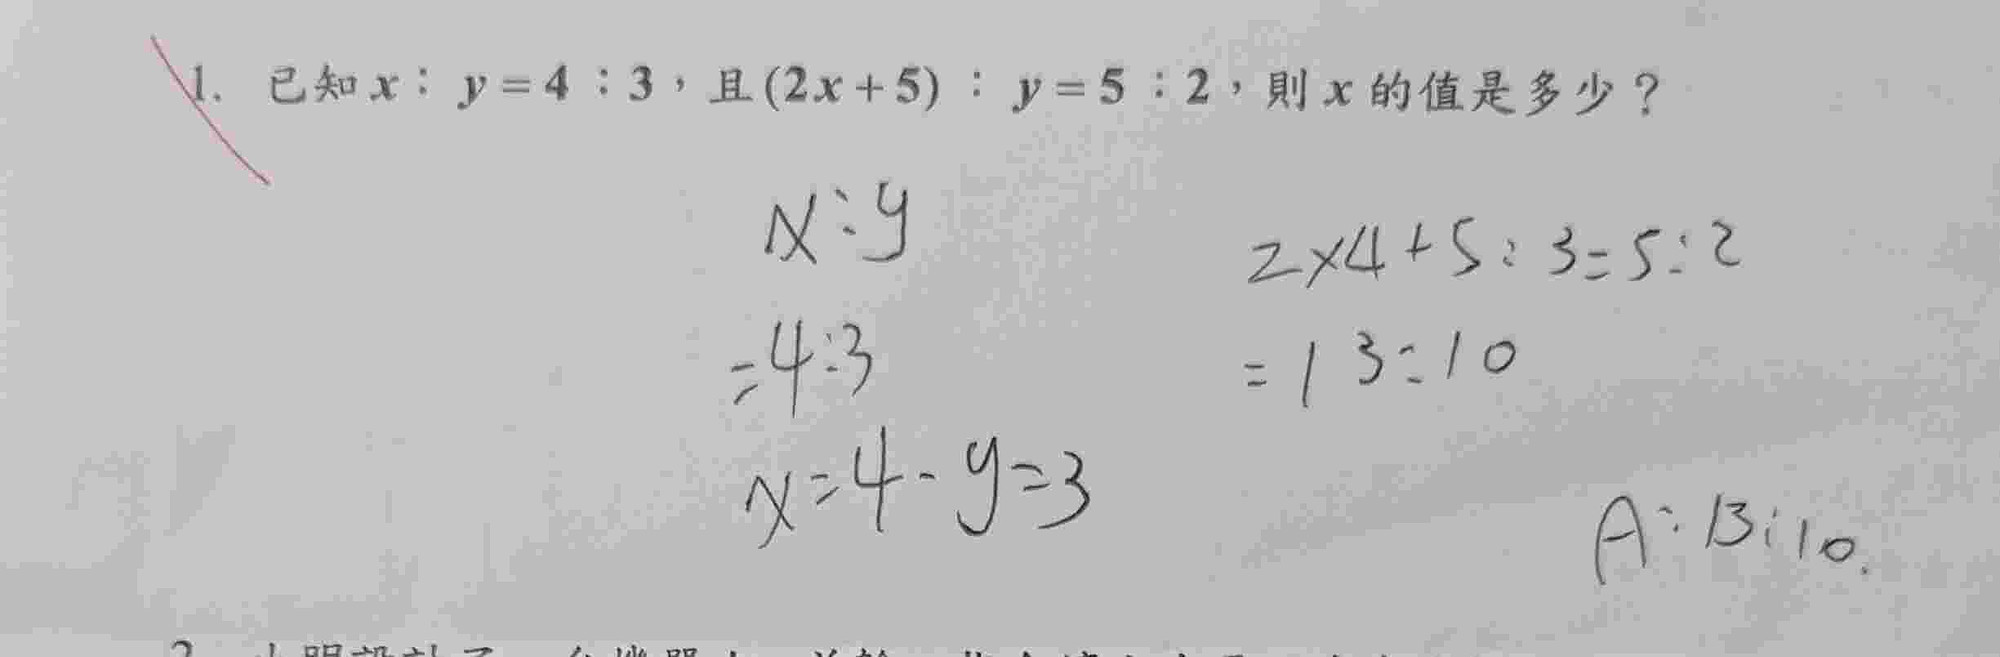 1. 已知 x : y = 4 : 3，且 (2x + 5) : y = 5 : 2，則 x 的值是多少？
x : y
= 4 : 3
x = 4 - y = 3
2 × 4 + 5 : 3 = 5 : 2
= 13 : 10
A : 13 : 10.